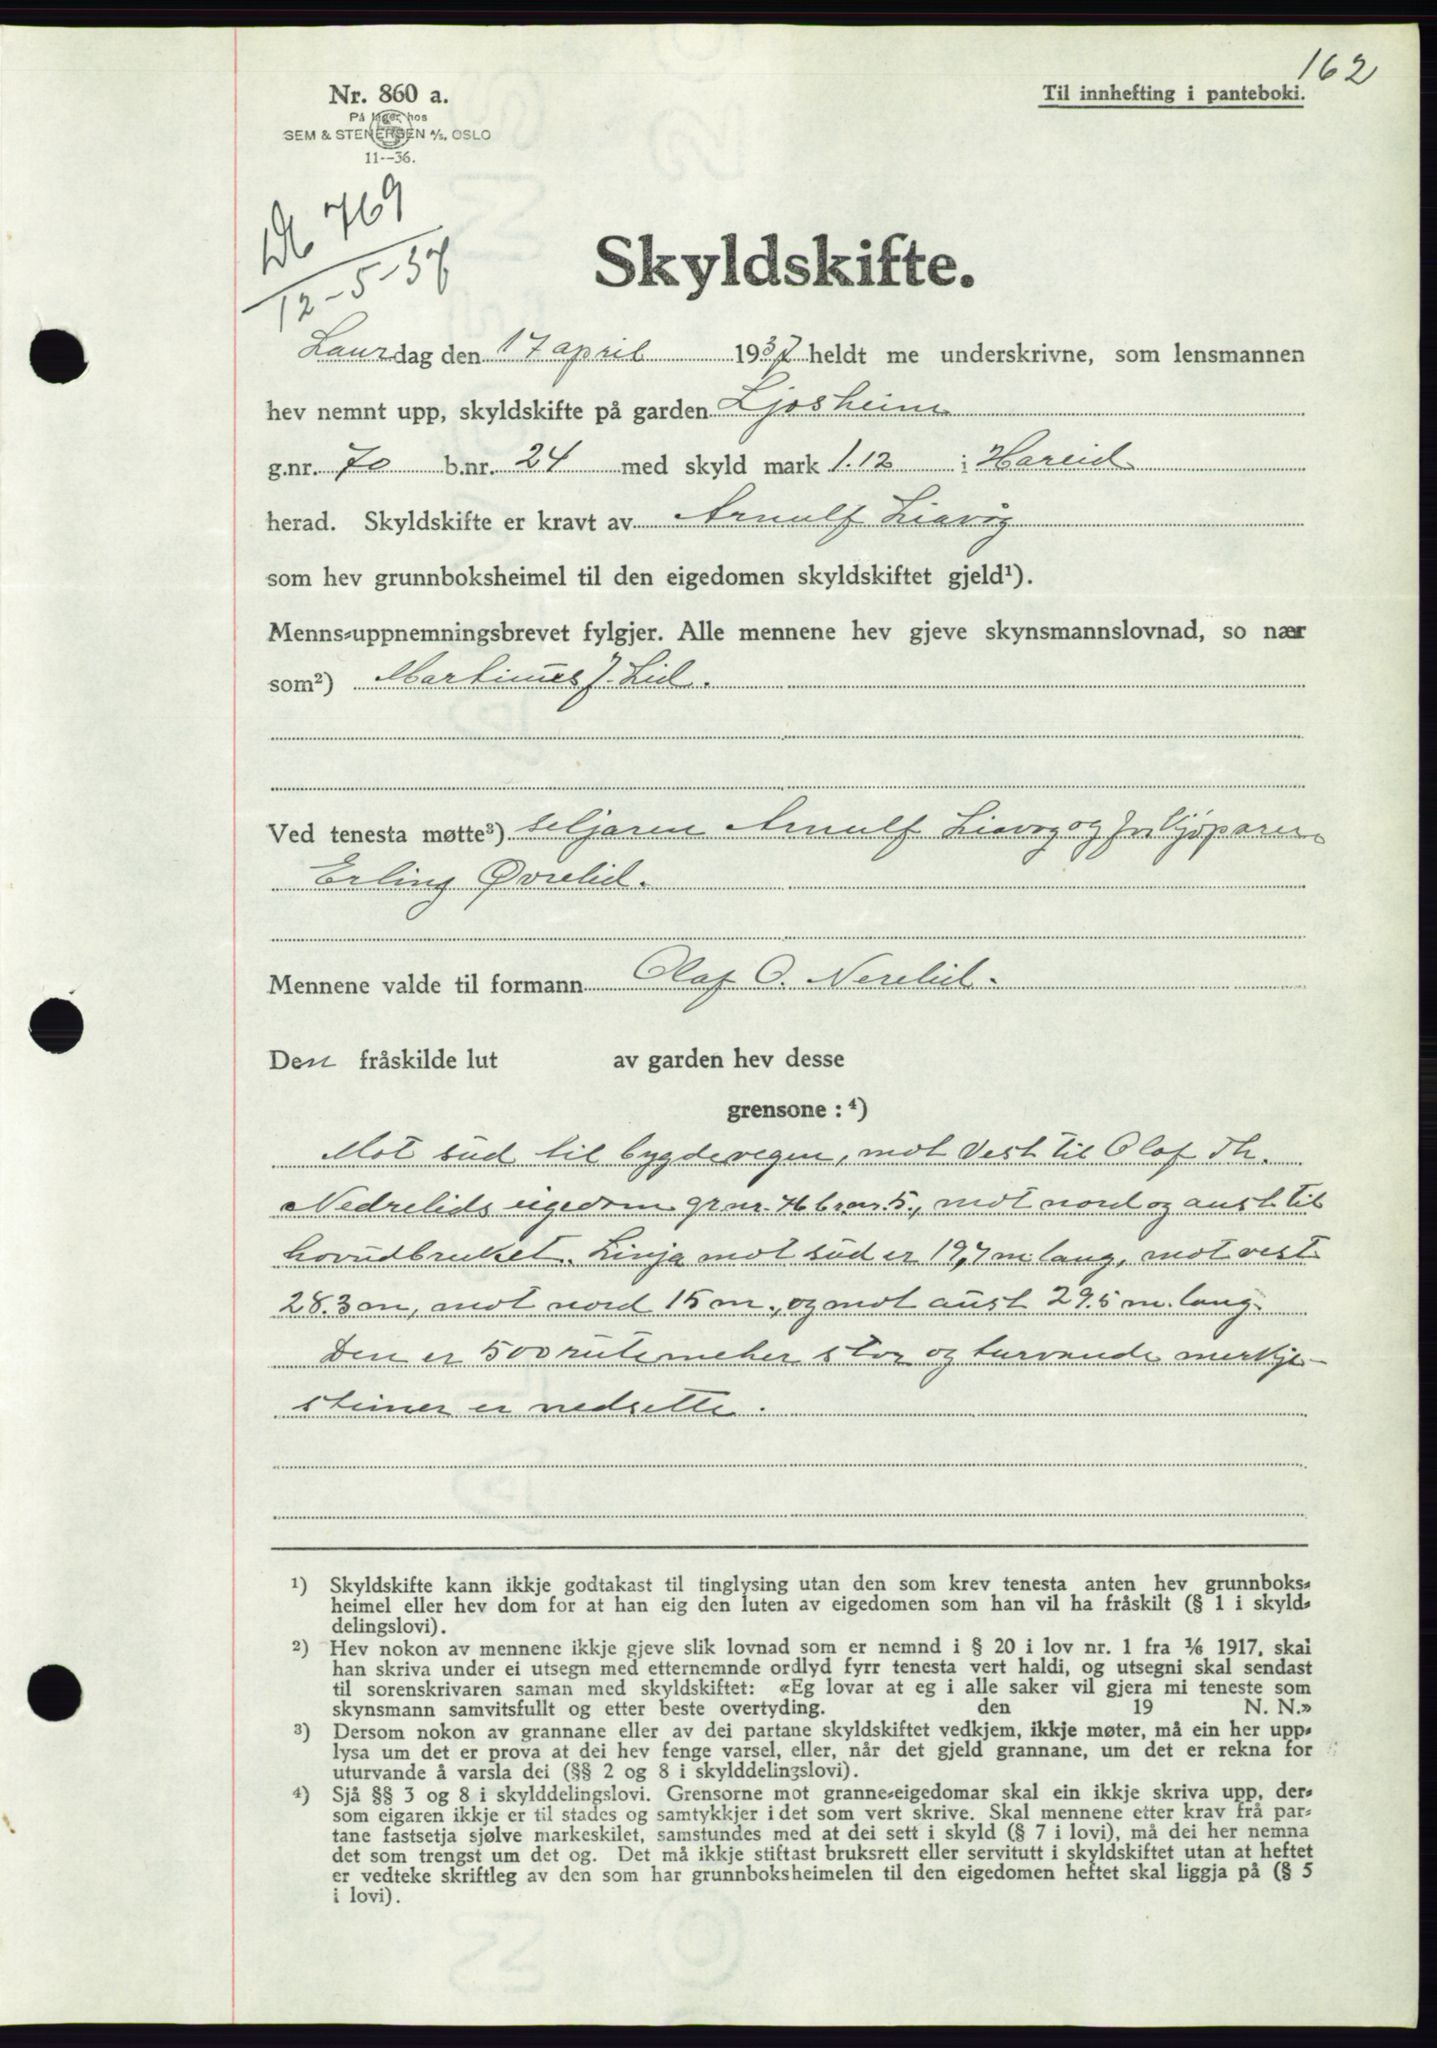 162
Nr. 860 a.
På lager hos
SEM & STENERSEN A/S, OSLO
11--36.
Til innhefting i panteboki.
Db 769
12-5-37
Skyldskifte.
Laurdag den 17 april 1937 heldt me underskrivne, som lensmannen
hev nemnt upp, skyldskifte på garden Ljosheim
g.nr. 70 b.nr. 24 med skyld mark 1.12 i Hareid
herad. Skyldskifte er kravt av Arnulf Liavåg
som hev grunnboksheimel til den eigedomen skyldskiftet gjeld¹).
Menns-uppnemningsbrevet fylgjer. Alle mennene hev gjeve skynsmannslovnad, so nær
som²) Martinus J. Lid.
Ved tenesta møtte³) seljaren Arnulf Liavog og for kjøparen
Erling Øvrelid.
Mennene valde til formann Olaf O. Nerelid.
Den fråskilde lut av garden hev desse
grensone: ⁴)
Mot sud til bygdevegen, mot vest til Olaf Th.
Nedrelids eigedom gr nr. 46 br.nr. 5., mot nord og aust til
hovudbruket. Linja mot sud er 19,7 m lang, mot vest
28.3 m, mot nord 15 m., og mot aust 29.5 m. lang.
Den er 500 rutemeter stor og turvande merkje-
steiner er nedsette.
¹) Skyldskifte kann ikkje godtakast til tinglysing utan den som krev tenesta anten hev grunnboks-
heimel eller hev dom for at han eig den luten av eigedomen som han vil ha fråskilt (§ 1 i skyld-
delingslovi).
²) Hev nokon av mennene ikkje gjeve slik lovnad som er nemnd i § 20 i lov nr. 1 fra ¹/₆ 1917, skal
han skriva under ei utsegn med etternemnde ordlyd fyrr tenesta vert haldi, og utsegni skal sendast
til sorenskrivaren saman med skyldskiftet: «Eg lovar at eg i alle saker vil gjera mi teneste som
skynsmann samvitsfullt og etter beste overtyding. den 19 N. N.»
³) Dersom nokon av grannane eller av dei partane skyldskiftet vedkjem, ikkje møter, må ein her upp-
lysa um det er prova at dei hev fenge varsel, eller, når det gjeld grannane, um det er rekna for
uturvande å varsla dei (§§ 2 og 8 i skylddelingslovi).
⁴) Sjå §§ 3 og 8 i skylddelingslovi. Grensorne mot granne-eigedomar skal ein ikkje skriva upp, der-
som eigaren ikkje er til stades og samtykkjer i det som vert skrive. Skal mennene etter krav frå par-
tane fastsetja sjølve markeskilet, samstundes med at dei sett i skyld (§ 7 i lovi), må dei her nemna
det som trengst um det og. Det må ikkje stiftast bruksrett eller servitutt i skyldskiftet utan at heftet
er vedteke skriftleg av den som har grunnboksheimelen til den eigedomen heftet skal liggja på (§ 5
i lovi).